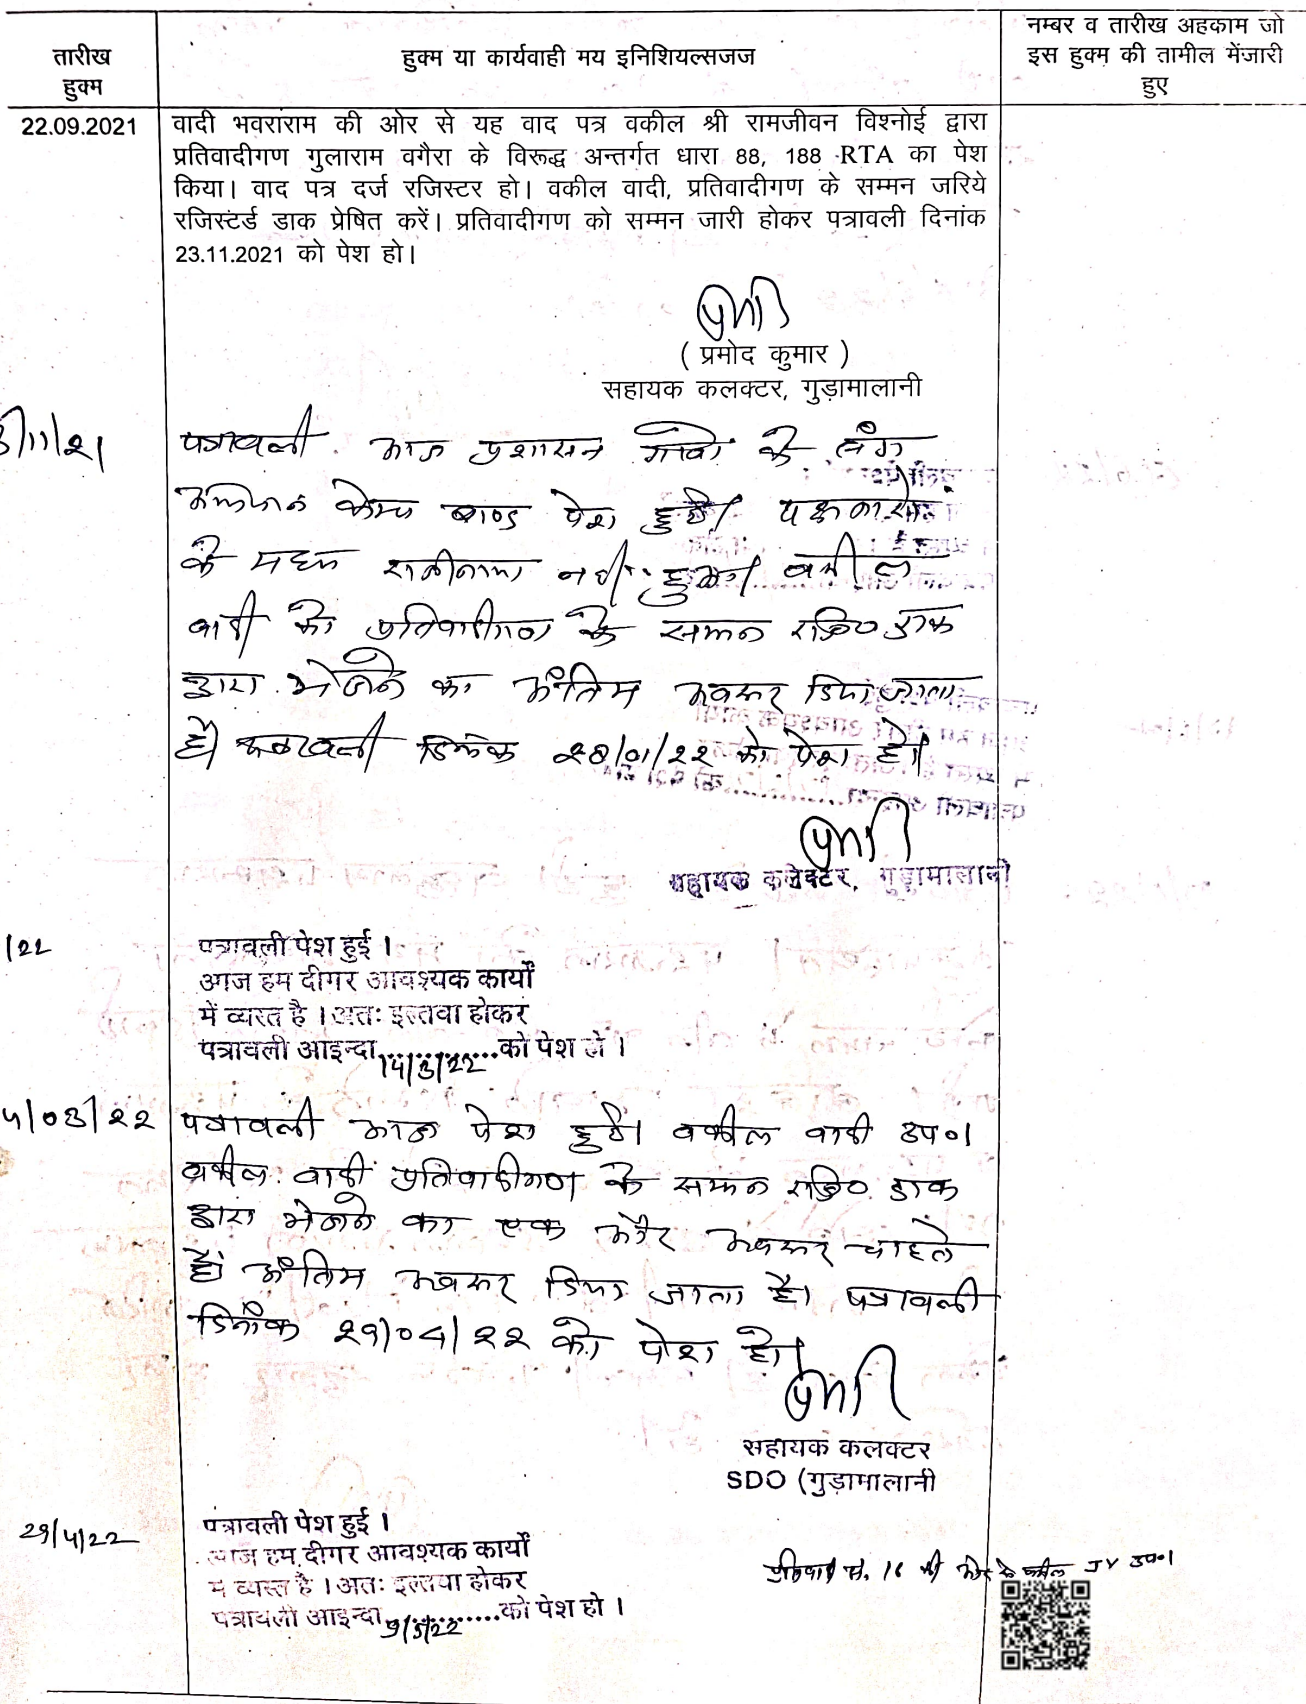 तारीख
हुक्म
हुक्म या कार्यवाही मय इनिशियल्सजज
नम्बर व तारीख अहकाम जो
इस हुक्म की तामील मेंजारी
हुए
22.09.2021
वादी भवरांराम की ओर से यह वाद पत्र वकील श्री रामजीवन विश्नोई द्वारा
प्रतिवादीगण गुलाराम वगैरा के विरूद्ध अन्तर्गत धारा 88, 188 RTA का पेश
किया। वाद पत्र दर्ज रजिस्टर हो। वकील वादी, प्रतिवादीगण के सम्मन जरिये
रजिस्टर्ड डाक प्रेषित करें। प्रतिवादीगण को सम्मन जारी होकर पत्रावली दिनांक
23.11.2021 को पेश हो।
( प्रमोद कुमार )
सहायक कलक्टर, गुड़ामालानी
/11/21
पत्रावली आज प्रशासन गांवो के संग
अभियान केम्प बाण्ड पेश हुई। पक्षकारान
के मध्य राजीनामा नहीं हुआ। वकील
वादी को प्रतिवादीगण के सम्मन रजि० डाक
द्वारा भेजने का अंतिम अवसर दिया जाता
है। पत्रावली दिनांक २८/०१/२२ को पेश हो।
सहायक कलेक्टर, गुड़ामालानी
/22
पत्रावली पेश हुई ।
आज हम दीगर आवश्यक कार्यों
में व्यस्त है । अतः इल्तवा होकर
पत्रावली आइन्दा 14/3/22 को पेश हो ।
/०३/२२
पत्रावली आज पेश हुई। वकील वादी उप०।
वकील वादी प्रतिवादीगण के सम्मन रजि० डाक
द्वारा भेजने का एक और अवसर चाहते
है। अंतिम अवसर दिया जाता है। पत्रावली
दिनांक २९/०४/२२ को पेश हो।
सहायक कलक्टर
SDO (गुड़ामालानी
29/4/22
पत्रावली पेश हुई ।
आज हम दीगर आवश्यक कार्यों
में व्यस्त है । अतः इल्तवा होकर
पत्रावली आइन्दा 9/5/22 को पेश हो ।
प्रतिवादी सं. 16 की ओर से वकील JV उप०।